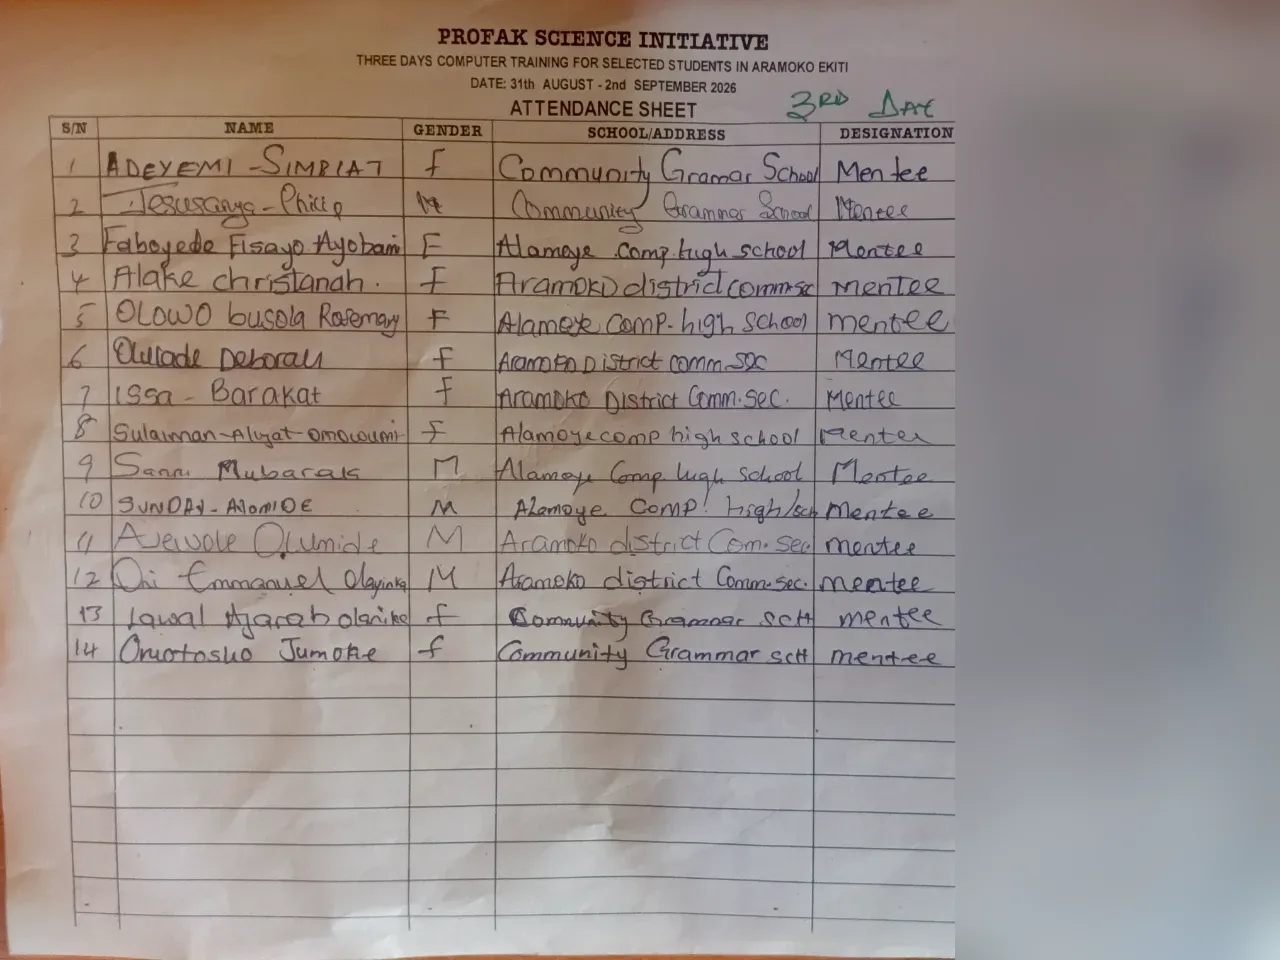 PROFAK SCIENCE INITIATIVE
THREE DAYS COMPUTER TRAINING FOR SELECTED STUDENTS IN ARAMOKO EKITI
DATE: 31th AUGUST - 2nd SEPTEMBER 2026
ATTENDANCE SHEET 3RD DAY
S/N NAME GENDER SCHOOL/ADDRESS DESIGNATION
1 ADEYEMI - SIMBIAT F Community Gramar School Mentee
2 Jesusanya - Philip M Community Grammar School Mentee
3 Faboyede Fisayo Ayobami F Alamoye comp.high school Mentee
4 Alake christanah. F Aramoko district comm.sc mentee
5 OLOWO busola Rosemary F Alamoye comp. high school mentee
6 Olulade Deborah F Aramoko District comm.sec Mentee
7 Issa - Barakat F Aramoko District Comm.sec. Mentee
8 Sulaiman - Aliyat - omowumi F Alamoye comp high school Mentee
9 Sanni Mubarak M Alamoye Comp. high school Mentee
10 SUNDAY - AYOMIDE M Alamoye Comp. high/sch mentee
11 Ayewole Olumide M Aramoko district Com. sec mentee
12 Oni Emmanuel Olayinka M Aramoko district Comm.sec. mentee
13 Lawal Ajarah olanike F Community Grammar scH mentee
14 Omotosho Jumoke F Community Grammar scH mentee